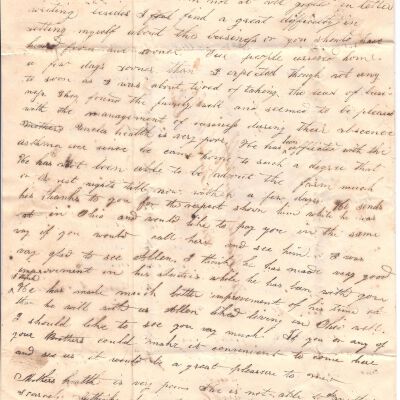 not at all good in letter
writing besides I find a great difficulty in
setting myself about this business or you should have
heard from me sooner. Our people arrived home
a few days sooner than I expected though not any
to soon as I was about tired of taking the care of busi-
ness. They found the family well and seemed to be pleased
with the management of business during their absence
Uncle health is very poor. He has been with the
since he came home to such a degree that
He has not been able to be about the farm much
or rest nights till now within a few days. He sends
his thanks to you for the respect shown him while he was
in Ohio and would like to pay you in the same
way if you would call here and see him. I was
very glad to see Allen. I think he has made very good
improvement in his studies while he has been with you
He has made much better improvement of his time
than he will with us Allen liked living in Ohio well.
I should like to see you very much. If you or any of
your Brothers could make it convenient to come here
and see us it would be a great pleasure to
Mothers health is very poor She is not able to